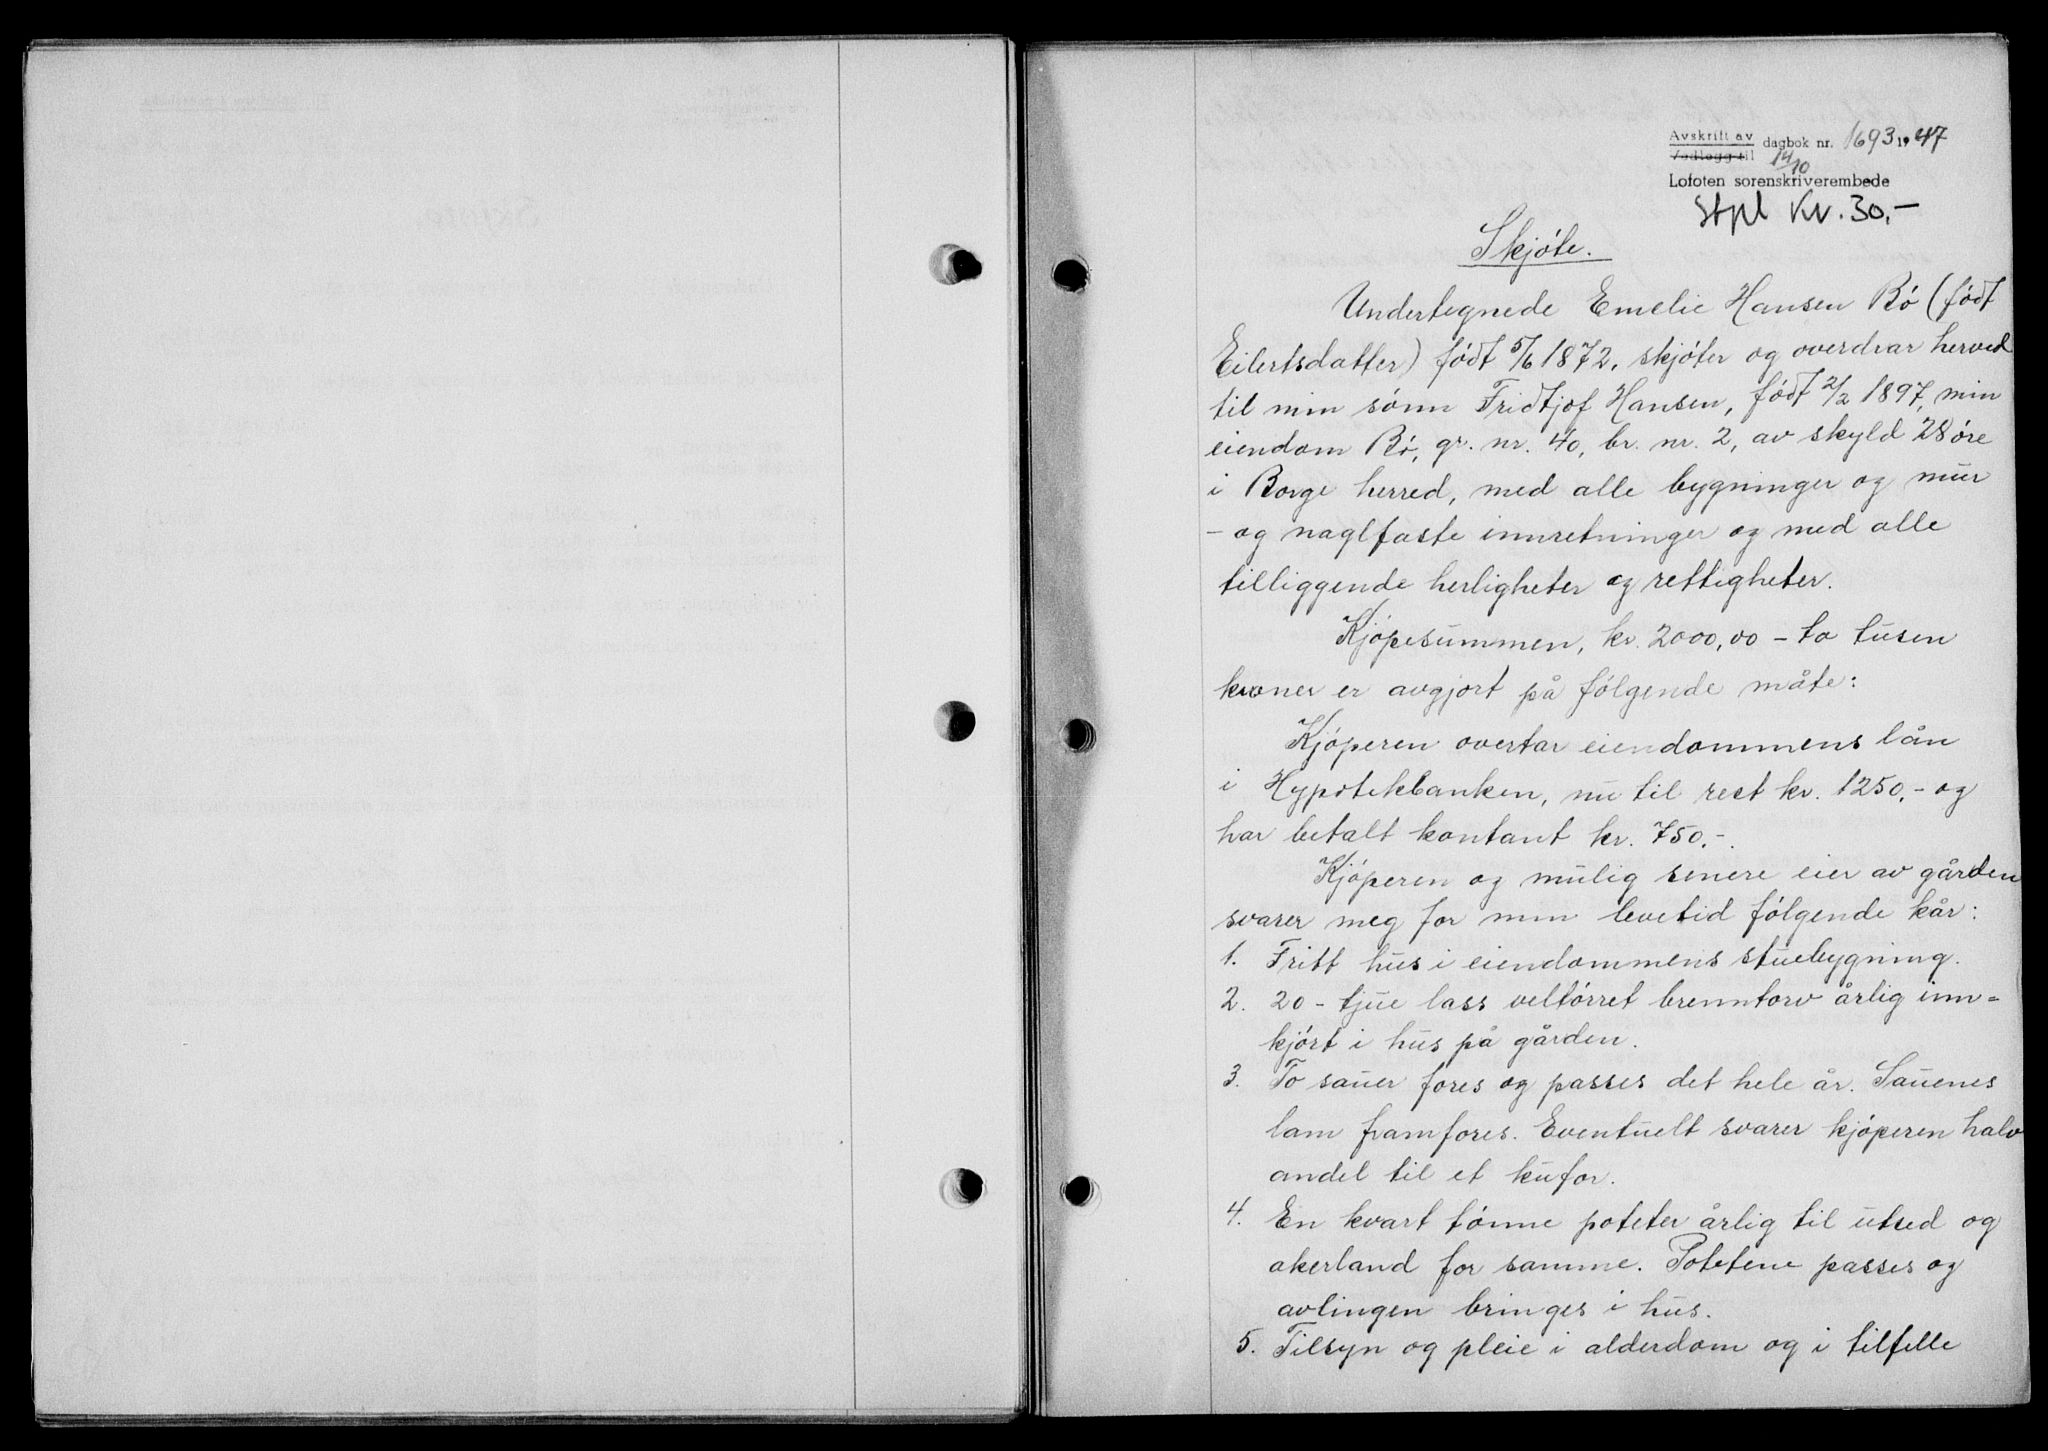 Avskrift av dagbok nr. 1693 1947
Vedlegg til 14/10
Lofoten sorenskriverembede
Stpl Kr. 30.-
Skjøte.
Undertegnede Emelie Hansen Bø (født
Eilertsdatter) født 5/6 1872, skjøter og overdrar herved
til min sønn Fridtjof Hansen, født 2/2 1897, min
eiendom Bø, gr. nr. 40, br. nr. 2, av skyld 28 øre
i Borge herred, med alle bygninger og mur
- og naglfaste innretninger og med alle
tilliggende herligheter og rettigheter.
Kjøpesummen, kr. 2000,00 - to tusen
kroner er avgjort på følgende måte:
Kjøperen overtar eiendommens lån
i Hypotekbanken, nu til rest kr. 1250.- og
har betalt kontant kr. 750.-.
Kjøperen og mulig senere eier av gården
svarer meg for min levetid følgende kår:
1. Fritt hus i eiendommens stuebygning.
2. 20 - tjue lass veltørret brenntorv årlig inn=
kjørt i hus på gården.
3. To sauer fores og passes det hele år. Sauenes
lam framfores. Eventuelt svarer kjøperen halv
andel til et kufor.
4. En kvart tønne poteter årlig til utsed og
akerland for samme. Potetene passes og
avlingen bringes i hus.
5. Tilsyn og pleie i alderdom og i tilfelle